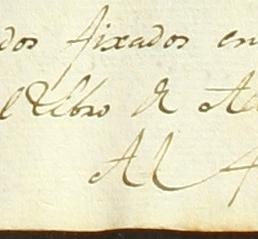 dos fixados en
el Libro de A
Al